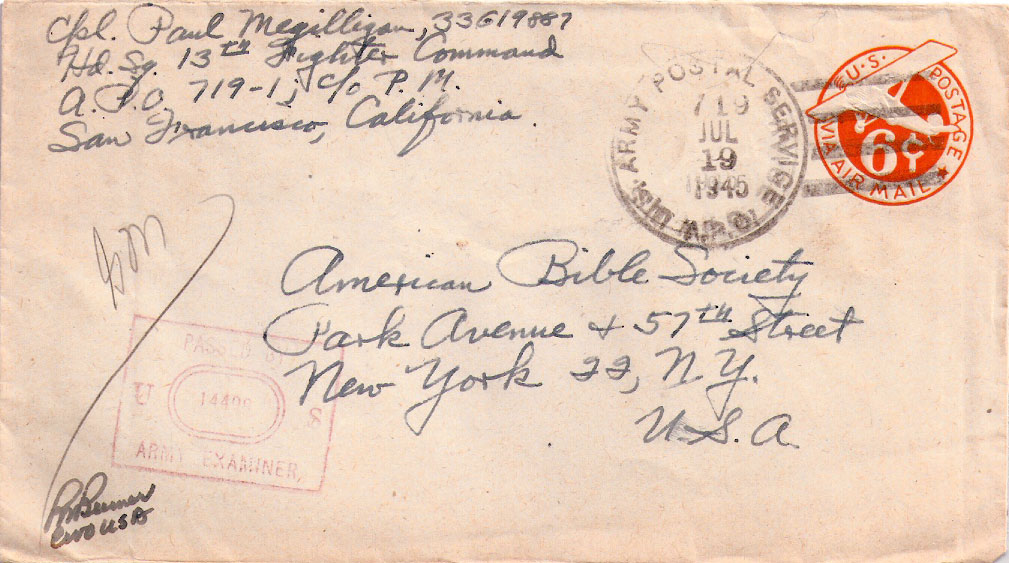 Cpl. Paul Megilligan, 33619887
Hd. Sq. 13TH Fighter Command
A.P.O. 719-1, c/o P.M.
San Francisco, California.
ARMY POSTAL SERVICE
719
JUL
19
1945
A.P.O.
U.S. POSTAGE
6¢
VIA AIR MAIL
American Bible Society
Park Avenue & 57th Street
New York 22, N.Y.
U.S.A.
PASSED BY
U S
ARMY EXAMINER
CWO USA